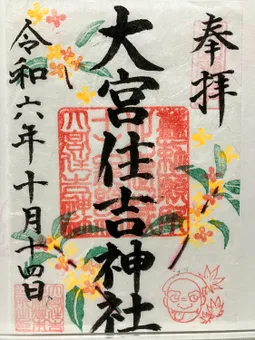 奉拝
大宮住吉神社
令和六年十月十四日